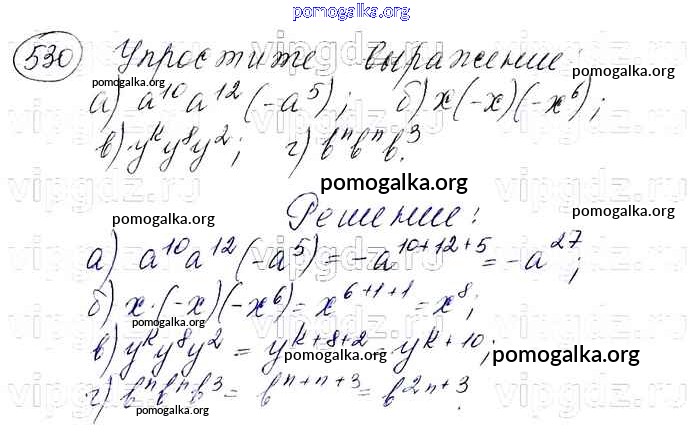 pomogalka.org
530 Упростите выражение:
pomogalka.org pomogalka.org
а) a¹⁰a¹²(-a⁵); б) x(-x)(-x⁶);
в) yᵏy⁸y²; г) bⁿbⁿb³.
vipgdz.ru vipgdz.ru
pomogalka.org
pomogalka.org Решение:
pomogalka.org
а) a¹⁰a¹²(-a⁵) = -a¹⁰⁺¹²⁺⁵ = -a²⁷;
б) x·(-x)(-x⁶) = x⁶⁺¹⁺¹ = x⁸;
pomogalka.org
в) yᵏy⁸y² = yᵏ⁺⁸⁺² = yᵏ⁺¹⁰;
pomogalka.org pomogalka.org
г) bⁿbⁿb³ = bⁿ⁺ⁿ⁺³ = b²ⁿ⁺³.
pomogalka.org pomogalka.org